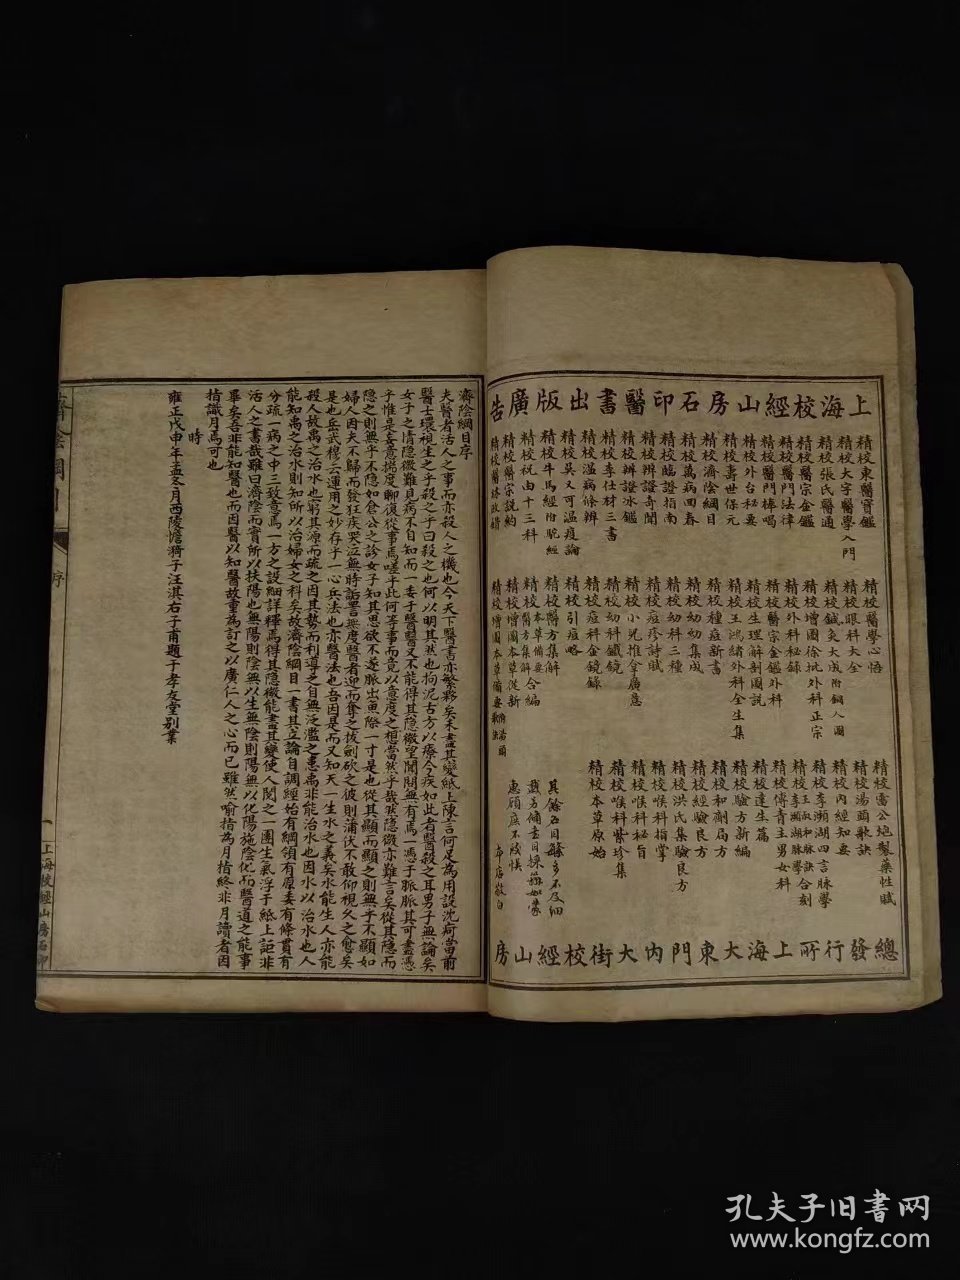 上海校經山房石印醫書出版廣告
精校東醫寶鑑
精校大字醫學入門
精校張氏醫通
精校醫宗金鑑
精校醫門法律
精校醫門棒喝
精校外台秘要
精校壽世保元
精校濟陰綱目
精校萬病回春
精校臨證指南
精校辨證奇聞
精校辨證冰鑑
精校李仕材三書
精校溫病條辨
精校吳又可温疫論
精校牛馬經附駝經
精校祝由十三科
精校醫宗說約
精校醫學心悟
精校眼科大全
精校鍼灸大成附銅人圖
精校增圖徐批外科正宗
精校外科秘錄
精校醫宗金鑑外科
精校生理解剖圖說
精校王鴻緒外科全生集
精校種痘新書
精校幼幼集成
精校幼科三種
精校痘疹詩賦
精校小兒推拿廣意
精校幼科鐵鏡
精校痘科金鏡錄
精校引痘略
精校醫方集解
精校本草備要合編
精校醫方集解
精校增圖本草從新
精校增圖本草備要
精校雷公炮製藥性賦
精校湯頭歌訣
精校內經知要
精校李瀕湖四言脉學
精校王叔和脉訣合刻
精校李瀕湖脉學
精校傅青主男女科
精校達生篇
精校驗方新編
精校和劑局方
精校經驗良方
精校洪氏集驗良方
精校喉科指掌
精校喉科秘旨
精校喉科紫珍集
精校本草原始
其餘名目繁多不及細
載另備書目採錄如蒙
惠顧庶不致悮
本店敬白
總發行所上海大東門內大街校經山房
濟陰綱目序
夫醫者活人之事而亦殺人之機也今天下醫書亦繁夥矣未盡其變紙上陳言何足為用設沈疴當前
醫士環視生之乎殺之乎曰殺之也何以明其然也拘泥古方以療今疾如此者醫殺之耳男子無論矣
女子之情隱微難見病不自知而一委于醫醫又不能得其隱微望聞問無有焉一憑于脈脈其可盡憑
乎惟是妄意揣度聊復從事焉嗟乎此何等事而竟以意度之想當然乎哉然隱微亦難言矣從其隱而
隱之則無乎不隱如倉公之診女子知其思欲不遂脈出魚際一寸是也從其顯而顯之則無乎不顯如
婦人因夫不歸而發狂疾哭泣無時詬詈無度醫者迎而奪之拔劍砍之彼則蒲伏不敢仰視久之愈矣
是也岳武穆云運用之妙存乎一心兵法也亦醫法也吾因是而又知天一生水之義矣水能生人亦能
殺人故禹之治水也窮其源而疏之因其勢而利導之自無泛濫之患禹非能治水也因水以治水也人
能知禹之治水則知所以治婦女之科矣故濟陰綱目一書其立論自調經始有綱領有原委有條貫有
分疏一病之中三致意焉一方之設細詳釋焉得其隱微能盡其變使人閱之一團生氣浮于紙上詎非
活人之書哉雖曰濟陰而實所以扶陽也無陽則陰無以生無陰則陽無以化陽施陰化而醫道之能事
畢矣吾非能知醫也而因醫以知醫故重為訂之以廣仁人之心而已雖然喻指為月指終非月讀者因
指識月焉可也
時
雍正戊申年孟冬月西陵憺漪子汪淇右子甫題于孝友堂別業
濟陰綱目
序
一
上海校經山房石印
孔夫子旧書网
www.kongfz.com